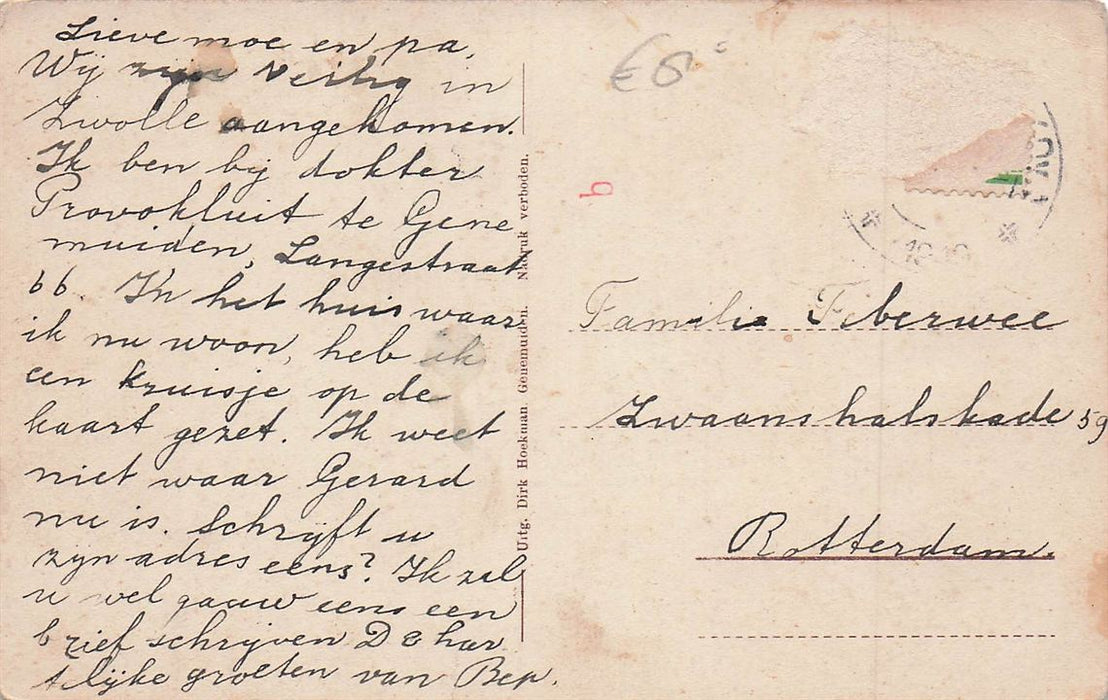 Lieve moe en pa,
Wij zijn veilig in
Zwolle aangekomen.
Ik ben bij dokter
Provokluit te Gene
muiden, Langestraat
66. In het huis waar
ik nu woon, heb ik
een kruisje op de
kaart gezet. Ik weet
niet waar Gerard
nu is. Schrijft u
zijn adres eens? Ik zal
u wel gauw eens een
brief schrijven De har
telijke groeten van Bep.
Uitg. Dirk Hoekman. Genemuiden. Nadruk verboden.
€6
b
Familie Feberwee
Zwaanshalskade 59
Rotterdam.